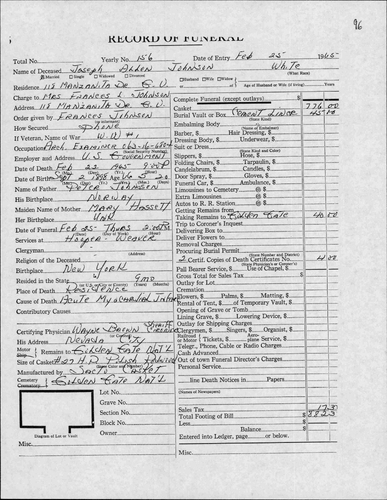 96
RECORD OF FUNERAL
Total No. Yearly No. 156 Date of Entry Feb 25 1965
Name of Deceased Joseph Allen Johnson White
Married Single Widowed Divorced (What Race)
Residence 118 Manzanita Dr. G.V. Husband Wife Widow Age of Husband or Wife (if living) Years
Charge to Mrs. Frances L. Johnson
Address 118 Manzanita Dr. G.V.
Order given by Frances Johnson
How Secured Phone
If Veteran, Name of War W.W. #1
Occupation Examiner
(Social Security Number)
Employer and Address U.S. Government
Date of Death Feb 23, 1965
Date of Birth 1898 Age 66
Name of Father Peter Johnson
His Birthplace Norway
Maiden Name of Mother Mary Hassett
Her Birthplace Unk
Date of Funeral Feb 25 - Thurs 2:00 PM
Services at Hooper - Weaver
Clergyman
Religion of the Deceased
Birthplace New York
Resided in the State 9 mo
Place of Death Residence
Cause of Death Acute Myocardial
Contributory Causes
Certifying Physician Wayne Brown
His Address Nevada City
Remains to Golden Gate Nat'l
Size of Casket
Manufactured by Sac'to Casket
Cemetery Golden Gate Nat'l
Crematory
Lot No.
Grave No.
Section No.
Block No.
Owner
Diagram of Lot or Vault
Misc.
Complete Funeral (except outlays) $
Casket 776.00
Burial Vault or Box Cement Liner 45.00
(State Kind)
Embalming Body
(Name of Embalmer)
Barber, $ Hair Dressing, $
Dressing Body, $ Underwear, $
Suit or Dress
(State Kind and Color)
Slippers, $ Hose, $
Folding Chairs, $ Tarpaulin, $
Candelabrum, $ Candles, $
Door Spray, $ Gloves, $
Funeral Car, $ Ambulance, $
Limousines to Cemetery @ $
Extra Limousines @ $
Autos to R. R. Station @ $
Getting Remains from
Taking Remains to Golden Gate 40.00
Trip to Coroner's Request
Delivering Box to
Deliver Flowers to
Removal Charges
Procuring Burial Permit
2 Certif. Copies of Death Certificates No. 4.00
Pall Bearer Service, $ Use of Chapel, $
Gross Total for Sales Tax $
Outlay for Lot
Cremation
Flowers, $ Palms, $ Matting, $
Rental of Tent, $ of Temporary Vault, $
Opening of Grave or Tomb
Lining Grave, $ Lowering Device, $
Outlay for Shipping Charges
Clergymen, $ Singers, $ Organist, $
Railroad or Motor Tickets, $ Aeroplane Service, $
Telegr., Phone, Cable or Radio Charges
Cash Advanced
Out of town Funeral Director's Charges
Personal Service
line Death Notices in Papers
(Names of Newspapers)
Sales Tax
Total Footing of Bill $
Less
Balance $
Entered into Ledger, page or below.
Misc.